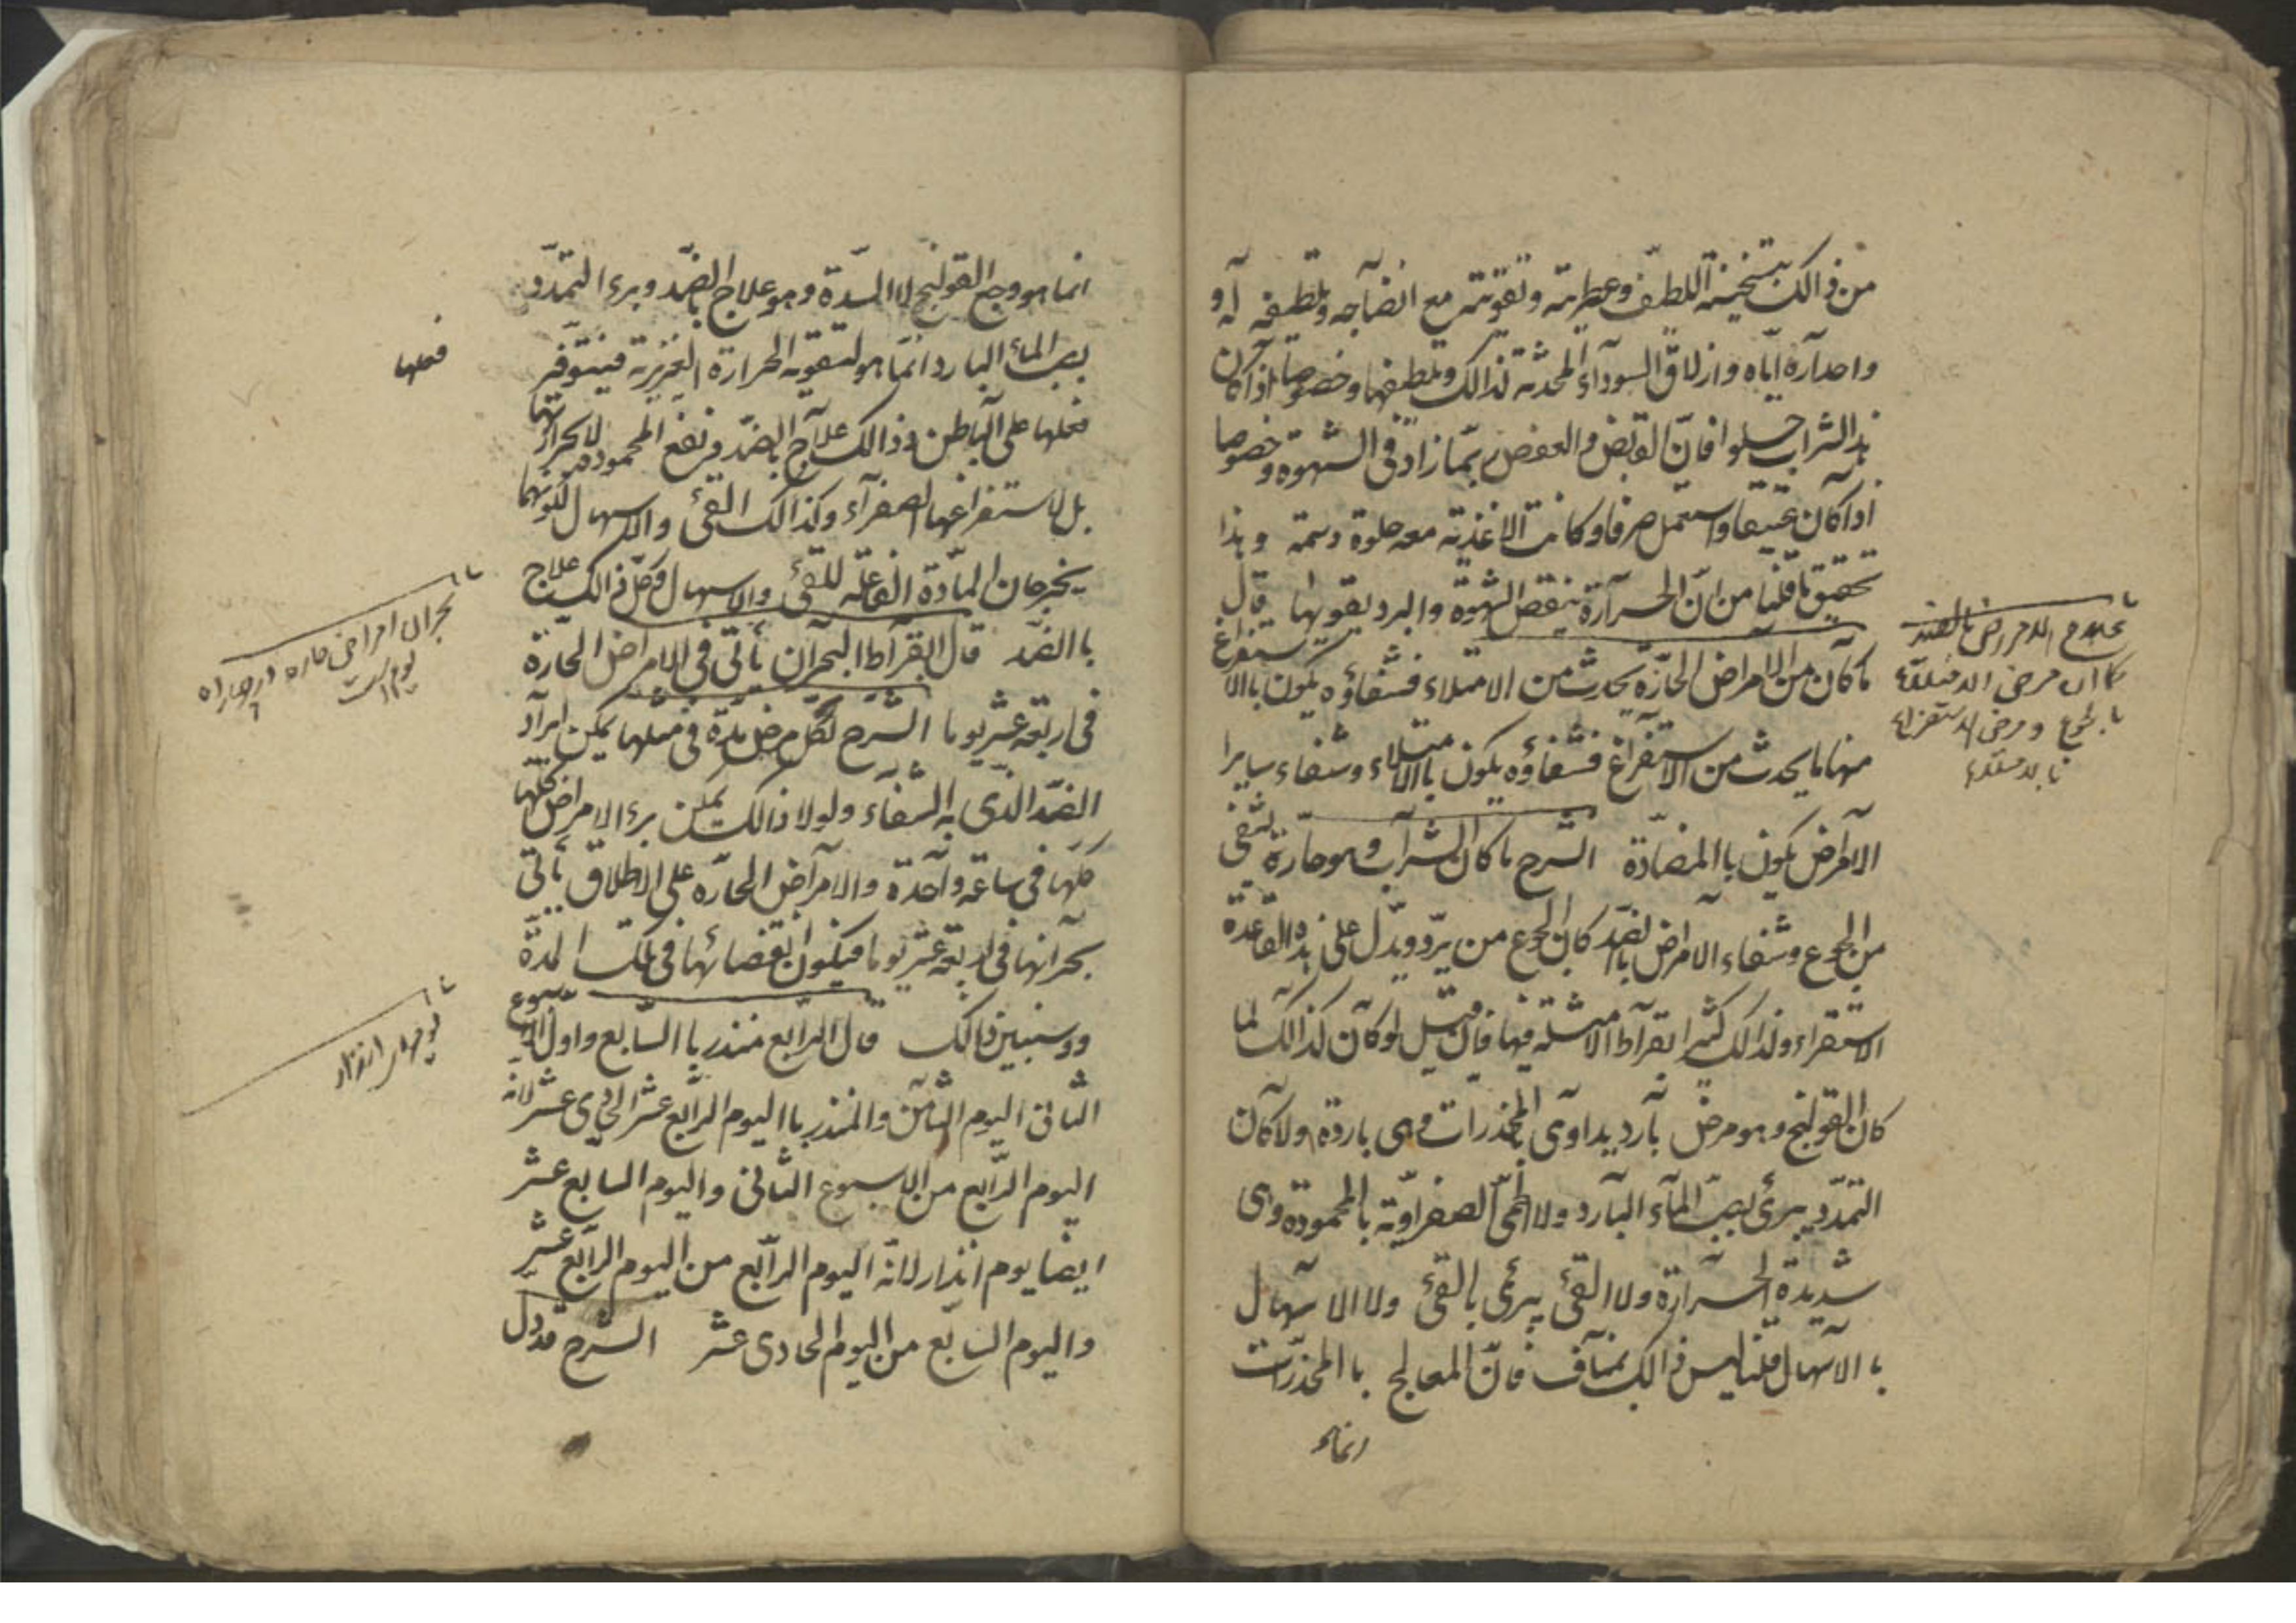 من ذالك بتسخينه اللطيف وعطريته وتقويته مع انضاجه وتلطيفه له و
واحداره اياه وازلاق السوداء المحدثه لذالك وتلطيفها وخصوصا اذا كان
هذا الشراب حلوا فان القابض والعفص ربما زاد في الشهوه وخصوصا
اذا كان عتيقا واستعمل صرفا وكانت الاغذيه معه حلوة دسمه وهذا
تحقيق ما قلنا من ان الحرارة ينقص الشهوة والبرد يقويها قال
ما كان من الامراض الحادّة يحدث من الامتلاء فشفاؤه يكون باالاستفراغ
منها ما يحدث من الاستفراغ فشفاؤه يكون باالامتلاء وشفاء سايرا
الامراض يكون باالمضادّة الشرح ما كان الشراب وهو حارة يشفى
من الجوع وشفاء الامراض بالضد كان الجوع من برد ويدل على هذه القاعدة
الاستقراء ولذالك كثر ابقراط الامثله فيها فان قيل لو كان كذالك لما
كان القولنج وهو مرض بارد يداوى بالمخدرات وهى باردة ولا كان
التمدّد يبرئ بصبّ الماء البارد ولا الحمّى الصفراويّة بالمحمودة وهى
شديدة الحرارة ولا القئ يبرئ بالقئ ولا الاسهال
با الاسهال قلنا ليس ذالك بمناف فانّ المعالج باالمخدّرات
انما هو
علاج الامراض بالضد
كان مرض الامتلاء
بالجوع ومرض الاستفراغ
بالامتلاء
انما هو وجع القولنج لا السدّة وهو علاج بالضدّ وبرء التمدّد
بصب الماء البارد انما هو لتقويه الحرارة الغريزية فيتوفر
فعلها على الباطن وذالك علاج بالضد ونفع المحمودة ليس لحرارتها
بل لاستفراغها الصفراء وكذالك القئ والاسهال لكونهما
يخرجان المادّة الفاعله للقئ والاسهال وكل ذالك علاج
باالضد قال ابقراط البحران يأتى في الامراض الحادة
في اربعة عشر يوما الشرح لكل مرض مدة في مثلها يمكن ايراد
الضد الذى به الشفاء ولولا ذالك يمكن برء الامراض
كلها في ساعة واحدة والامراض الحادّه على الاطلاق يأتى
بحرانها في اربعة عشر يوما فيكون انقضائها في تلك المدّة
وسنبين ذالك قال الرابع منذر باالسابع واول الاسبوع
الثانى اليوم الثامن والمنذر باليوم الرابع عشر الحادى عشر لانه
اليوم الرابع من الاسبوع الثانى واليوم السابع عشر
ايضا يوم انذار لانه اليوم الرابع من اليوم الرابع عشر
واليوم السابع من اليوم الحادى عشر الشرح قد دل
فعلها
بحران امراض حاره در چهارده
يوم است